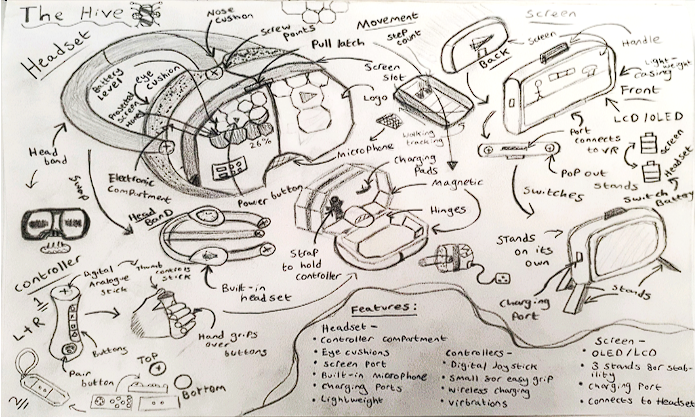 The Hive
Nose
cushion
Headset
Screw
points
Pull latch
Movement
step
count
Screen
screen
Back
Handle
Light weight
casing
Front
LCD/OLED
Battery
Level
eye
cushion
Screen
slot
Logo
26%
walking
tracking
Microphone
Charging
Pads
Port
connects
to VR
Pop out
stands
Screen
Headset
Switch
Battery
Head
band
Electronic
Compartment
Power button
Magnetic
Hinges
Switches
Swap
Head
BanD
Strap
to hold
controller
Built-in
headset
Stands
on its
own
Charging
Port
Stands
Controller
Digital
Analogue
stick
Thumb controls
stick
L+R
Buttons
Hand grips
over
buttons
Pair
button
Top
Bottom
Features:
Headset -
• Controller compartment
• Eye cushions
• Screen port
• Built-in microphone
• charging Ports
• Lightweight
Controllers-
• Digital Joystick
• Small for easy grip
• wireless charging
• vibrations
Screen -
• OLED/LCD
• 3 stands for stab-
ility
• charging Port
• Connects to Headset